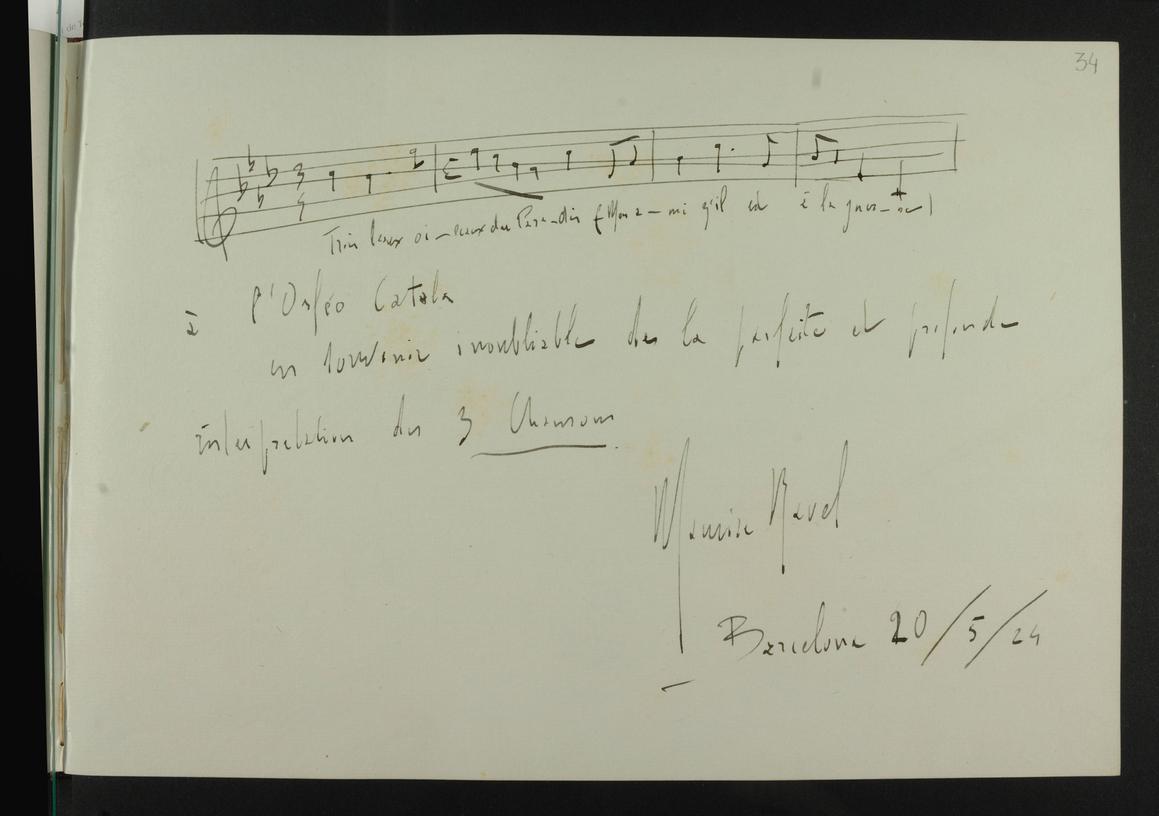 34
3
4
Trois beaux oi-seaux du Para-dis (Mon a-mi z'il est à la guer-re)
à l'Orféo Català
en souvenir inoubliable de la parfaite et profonde
interprétation des 3 Chansons.
Maurice Ravel
Barcelone 20/5/24